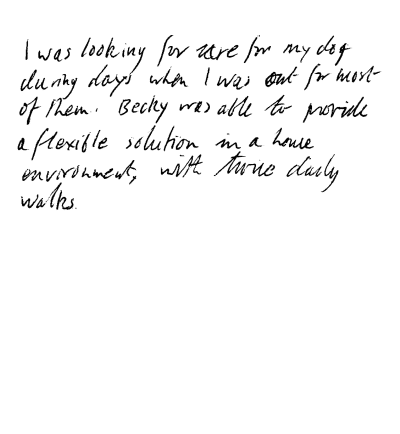 I was looking for care for my dog
during days when I was out for most
of them. Becky was able to provide
a flexible solution in a home
environment, with twice daily
walks.